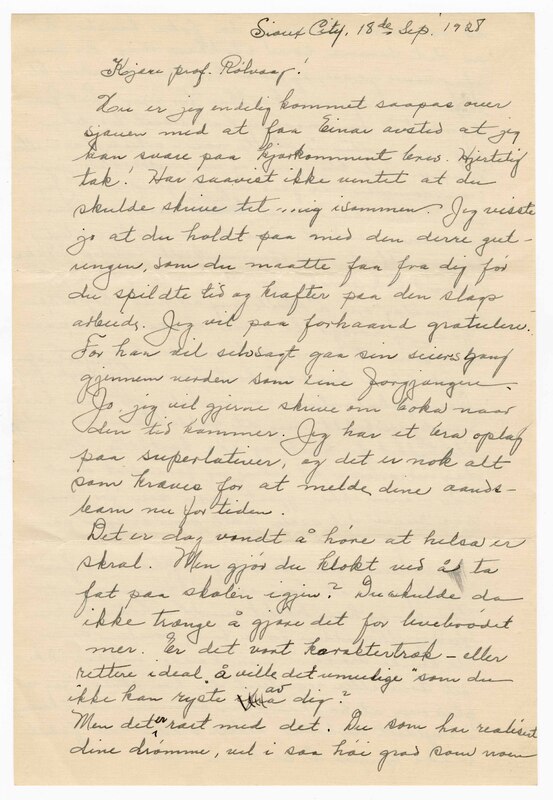 Sioux City, 18de Sep. 1928
Kjære prof. Rølvaag!
Nu er jeg endelig kommet saapas over
sjauen med at faa Einar avsted at jeg
kan svare paa kjærkomment brev. Hjertelig
tak! Har saavist ikke ventet at du
skulde skrive til ...mig isommen. Jeg visste
jo at du holdt paa med den derre gut-
ungen, som du maatte faa fra dig før
du spildte tid og kræfter paa den slags
arbeide. Jeg vil paa forhaand gratulere.
For han vil selvsagt gaa sin seiersgang
gjennem verden som sine forgjængere.
Jo jeg vil gjerne skrive om boka naar
den tid kommer. Jeg har et bra oplag
paa superlativer, og det er nok alt
som kræves for at melde dine aands-
barn nu for tiden.
Det er dog vondt å høre at helsa er
skral. Men gjør du klokt ved å ta
fat paa skolen igjen? Du skulde da
ikke trænge å gjøre det for levebrødet
mer. Er det vort karaktertræk – eller
rettere ideal „å ville det umulige" som du
ikke kan ryste av dig?
Men det er rart med det. Du som har realisert
dine drømme, vil i saa høi grad som noen